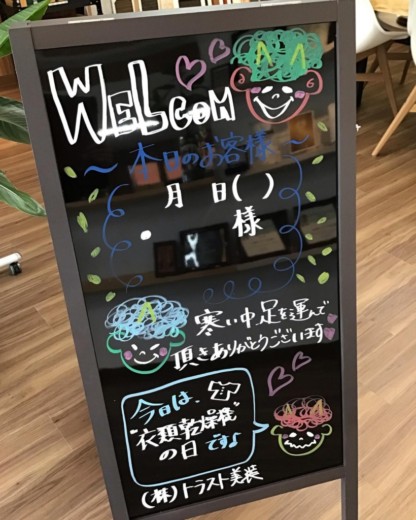 WELCOM
～本日のお客様～
月 日( )
・ 様
寒い中、足を運んで
頂きありがとうございます
今日は、
"衣類乾燥機"
の日 ですよ
(株)トラスト美装